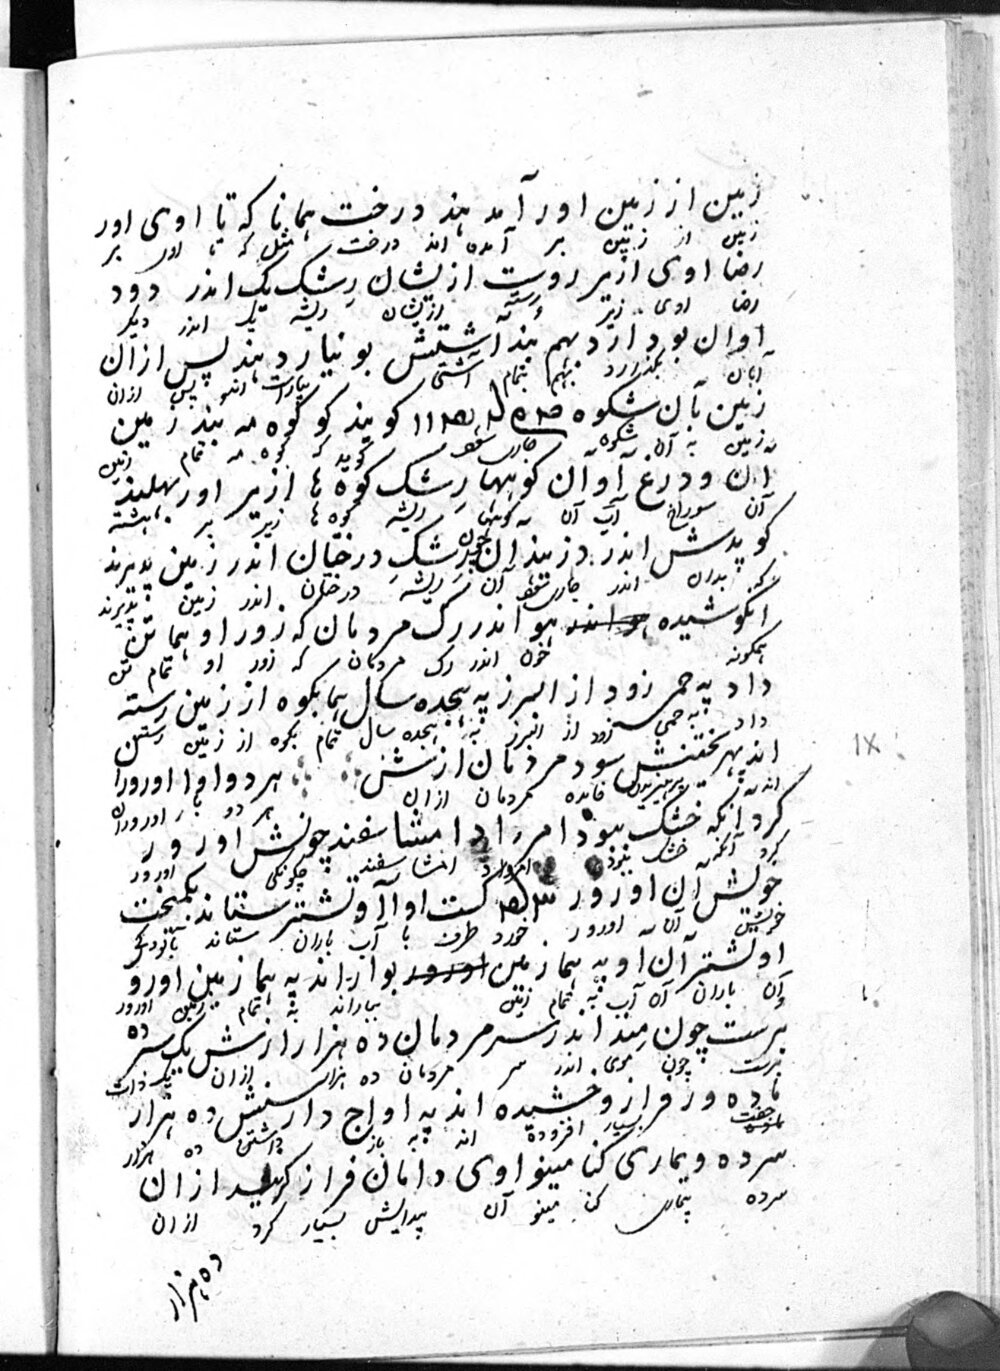 زمین از زمین اور آمد هند درخت همانا که تا اوی اور
زمین از زمین بر آمده اند درخت مثل که تا اوی بر
رضا اوی ازیر روست ازیشان رشک یک اندر دود
رضا اوی زیر رسته ازیشان ریشه یک اندر دیگر
آوان بود ارد بهم هند آشتش بو نیارد هند پس ازان
آبان بگذرد بهم تمام آشتی بیاراست اند پس ازان
زمین بآن شکوه گویند کو کوه مه هند زمین
زمین به آن شکوه جاری گوید که کوه مه تمام زمین
آن ودرغ آوآن کوهها رشک کوه ها ازیر اور بهلیند
آن سوراخ آب آن کوهها ریشه کوه ها زیر بر بهشته
کو پدش اندر دزیندان رشک درختان اندر زمین پدیرند
که بدان اندر جاری آن ریشه درختان اندر زمین پذیرند
انگوشیده هو اندر رگ مردمان که زور او هما تن
همگونه خون اندر رگ مردمان که زور او تمام تن
داد په جمی زود از البرز په هیجده سال هما بکوه از زمین رسته
داد به جمی زود از البرز به هیجده سال تمام بکوه از زمین رستن
اند بهر سود مردمان ازش هر دو اوا اورورا
اند فائده مردمان ازان هر دو با اوروران
کرد آنکه خشک بود امرداد امشاسفند چونش اورور
کرد آنکه خشک بود امرداد امشاسفند چگونگی اورور
خویش آن اورور کست او آ اوتشتر ستاند بکمیخت
خویش آن اورور خورد طرف با آب باران ستاند
او تشتر آن او په هما زمین بواراند په هما زمین اورو
آن باران آن آب به تمام زمین بباراند به تمام زمین اورور
برست چون مند اندر سر مردمان ده هزار ازش یک سر ده
برست چون موی اندر سر مردمان ده هزار ازان یک ذات
ماده ور فراز وخشیده اند په اواج دارسنش ده هزار
جفت بسیار افزوده اند به باز داشتن ده هزار
سرده ویماری کنا مینو اوی دامان فراز کرینید ازان
سرده بیماری کنا مینو آن پیدایش بسیار کرد ازان
ده هزار
IX